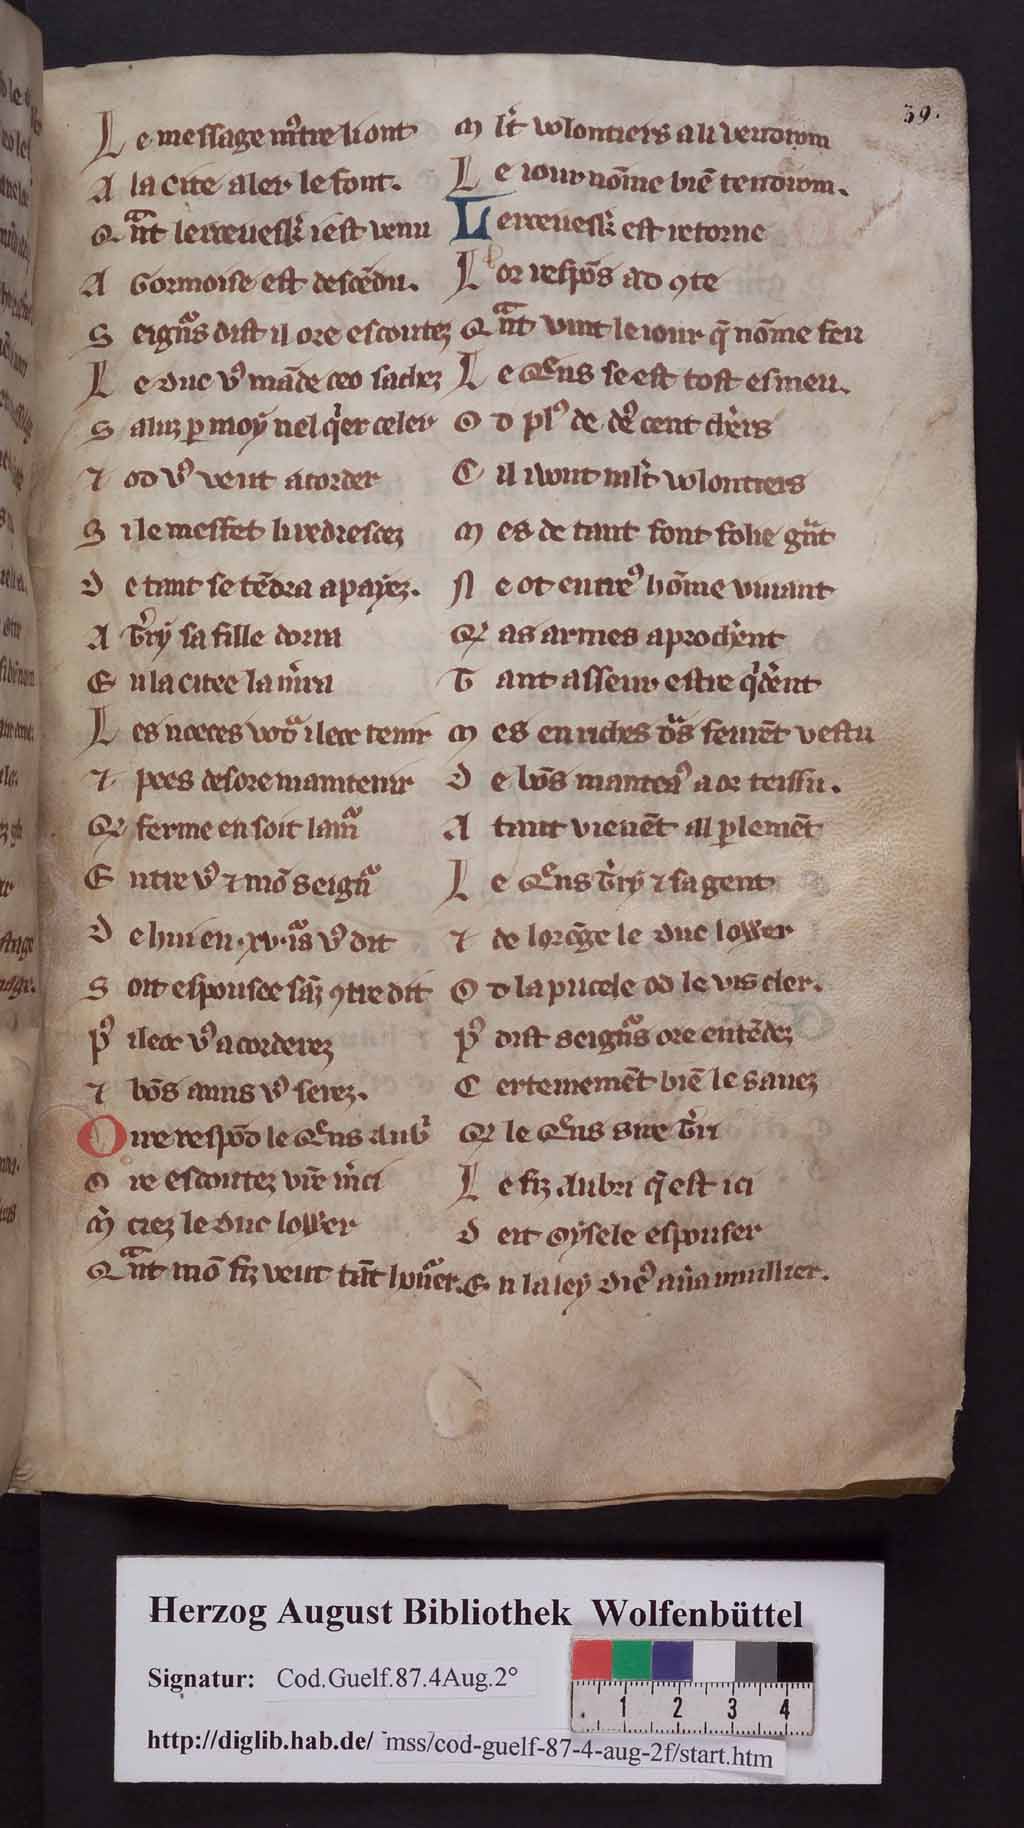 39.
Le message mõtre li ont
A la cite aler le font.
Qãnt lerceuesk̃ i est venu
A Gormoise est descẽdu.
Seignãs dist il ore escoutez
Le duc vꝰ mãde ceo sachez
Saluz p moy nel q̃er celer
⁊ od vꝰ veut acorder
Si le meffet li redrescez
De tant se tẽdra a payez.
A Gũy sa fille dorra
En la citee la mũra
Les noeces votª ileoc tenir
⁊ pees desore maintenir
Qͥ ferme en soit lamª
Entre vꝰ ⁊ mõ seignª
De hui en .xv. iªs vꝰ dit
Soit espousee sãz ꝯtre dit
Pꝰ ileoc vꝰ acorderez
⁊ bõs amis vꝰ serez.
Ore respõd le Qͤns Aubͥ
Ore escoutez vrẽ mͥci
Mͥciez le duc lower
Qãnt mõ fiz veut tãt honªer.
Mlt̃ volontiers a li vendrom
Le iour nõme biẽ tendrom.
Lerceuesk̃ est retorne
Lor respõs ad ꝯte
Qãnt vint le iour q̃ nõme feu
Le Qͤns se est tost esmeu.
Od plꝰ de deꝰ cent chͥrs
Cil i vont mlt̃ volontiers
Mes de tant font folie gãt
Ne ot en treꝰ hõme viuant
Qͥ as armes aprochẽent
Tant asseur estre q̃dẽent
Mes en riches dªs feurẽt vestu
De bõs manteaꝰ a or teissu.
A tant vienẽt al plemẽt
Le Qͤns Gͥry ⁊ sa gent
⁊ de lorẽge le duc lower
Od la pucele od le vis cler.
Pꝰ dist seignãs ore entẽdez
Certeinemẽt biẽ le sauez
Qͥ le Qͤns sire Gͥri
Le fiz Aubri q̃ est ici
Deit Oysele espouser
En la ley dieꝰ aũa muillier.
Herzog August Bibliothek Wolfenbüttel
Signatur: Cod.Guelf.87.4Aug.2°
1 2 3 4
http://diglib.hab.de/ mss/cod-guelf-87-4-aug-2f/start.htm